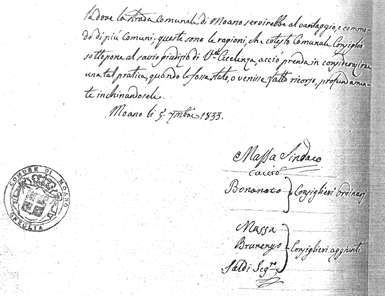 là dove la strada Comunale di Moano servirebbe al vantaggio, e commo-
do di più Comuni; queste sono le ragioni, che cotesto Comunale Consiglio
sottopone al savio giudizio di V.ra Eccelenza, acciò prenda in considerazione
una tal pratica, quando le fosse stata, o venisse fatto ricorso, profondame-
te inchinandosele
Moano li 5 7mbre 1833.
Massa Sindaco
Bonanato
Consiglieri ordinari
Massa
Brunengo
Consiglieri aggiunti
Saldi Segr.
COMUNE DI MOANO